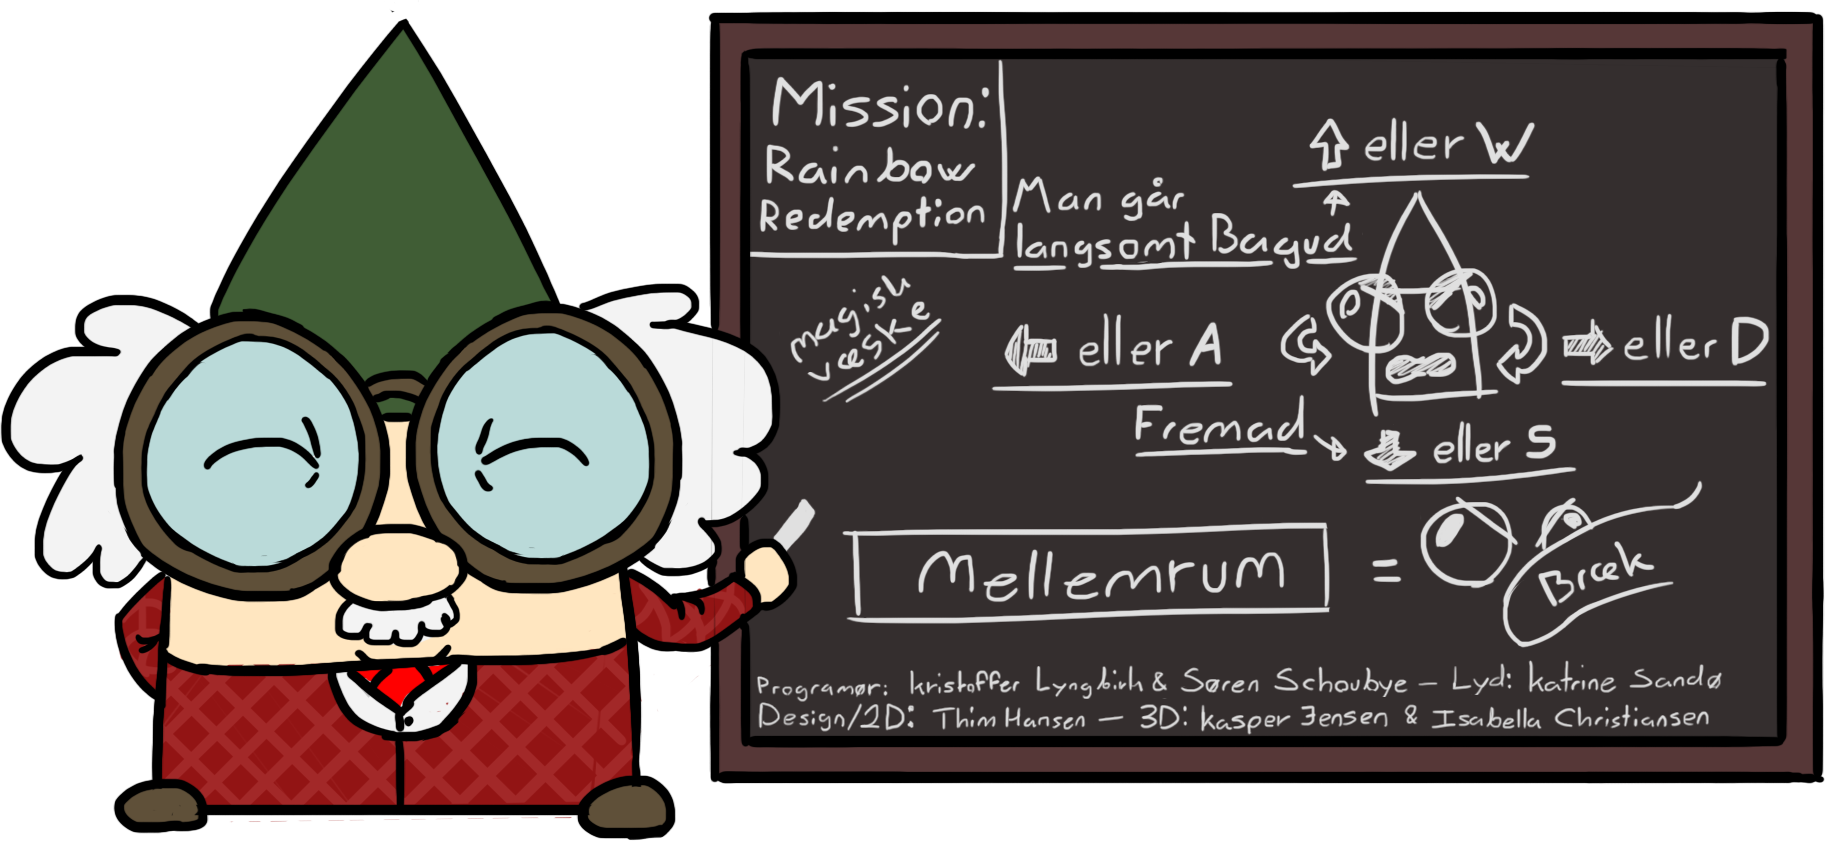 Mission:
Rainbow
Redemption
Man går
langsomt Bagud
↑ eller W
magisk
væske
← eller A
→ eller D
Fremad
↓ eller S
Mellemrum
=
Bræk
Programør: Kristoffer Lyngbirk & Søren Schoubye – Lyd: Katrine Sandø
Design/2D: Thim Hansen – 3D: Kasper Jensen & Isabella Christiansen